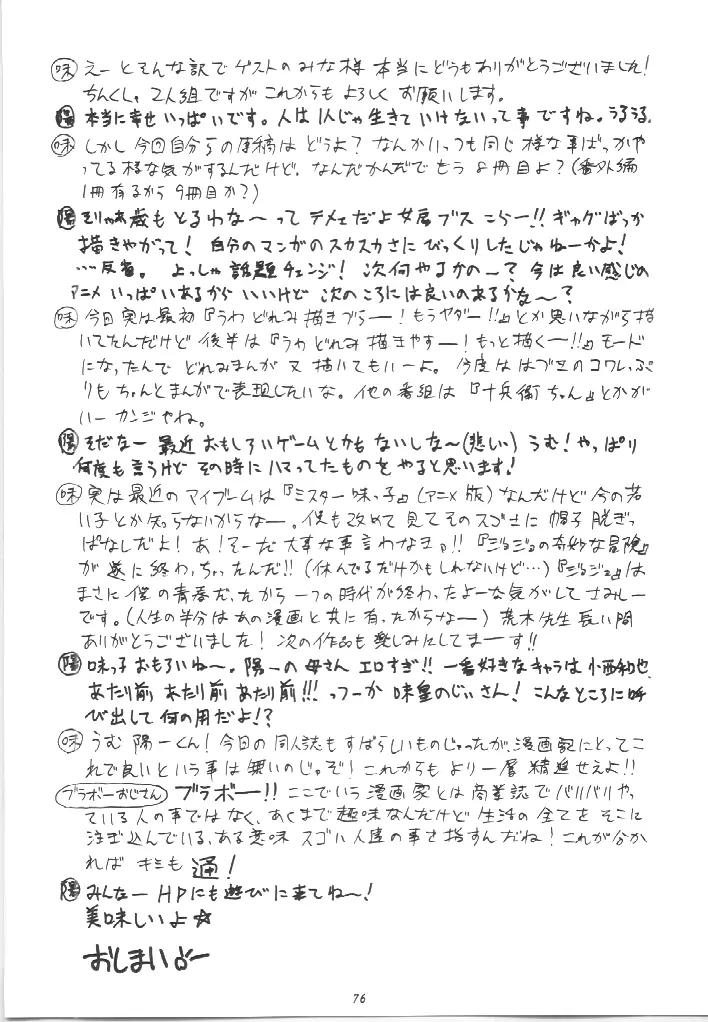 味 えーとそんな訳で ゲストのみな様 本当にどうもありがとうございました!
ちんくし、2人組ですが これからも よろしく お願いします。
陽 本当に幸せいっぱいです。人は1人じゃ生きていけないって事ですね。うるうる。
味 しかし今回自分らの原稿は どうよ? なんかいっつも同じ様な事ばっかや
ってる様な気がするんだけど、なんだかんだで もう 8冊目よ?(番外編
1冊有るから 9冊目か?)
陽 そりゃ歳もとるわな〜って テメェだよ 女房ブス こらー!! ギャグばっか
描きやがって! 自分のマンガのスカスカさに びっくりしたじゃねーかよ!
…反省。 よっしゃ 話題チェンジ! 次何やるかの〜? 今は良い感じの
アニメ いっぱいあるから いいけど 次のころには良いのあるかな〜?
味 今回実は最初『うわ どれみ描きづらー!もうヤダー!!』とか思いながら描
いてたんだけど 後半は『うわ どれみ描きやすー!もっと描くー!!』モード
になったんで どれみまんが 又 描いてもいーよ。 今度は はづきのコワレっぷ
りも ちゃんとまんがで表現したいな。他の番組は『十兵衛ちゃん』とかが
いー カンジやね。
陽 そだなー 最近 おもしろいゲームとかも ないしな〜(悲しい) うむ! やっぱり
何度も言うけど その時に ハマってたものを やると思います!
味 実は最近の マイブームは『ミスター味っ子』(アニメ版)なんだけど 今の若
い子とか知らないからなー。僕も改めて 見てそのスゴさに 帽子 脱ぎっ
ぱなしだよ! あ! そーだ 大事な事言わなきゃ!!『ジョジョの奇妙な冒険』
が 遂に 終わっちゃったんだ!!(休んでるだけかもしれないけど…)『ジョジョ』は
まさに 僕の青春だったから 一つの時代が終わったよーな気がして さみしー
です。(人生の半分はあの漫画と共に有ったからなー) 荒木先生 長い間
ありがとうございました! 次の作品も 楽しみにしてまーす!!
陽 味っ子 おもろいね〜。陽一の母さん エロすぎ!! 一番好きなキャラは 小西和也
あたり前 あたり前 あたり前!!! っつーか 味皇のじいさん! こんなところに呼
び出して 何の用だよ!?
味 うむ 陽一くん! 今回の 同人誌も すばらしいものじゃったが、漫画家にとってこ
れで良いという事は 無いのじゃぞ! これからも より一層 精進せえよ!!
ブラボーおじさん ブラボー!! ここでいう 漫画家とは 商業誌で バリバリや
ている人の事ではなく、あくまで趣味なんだけど 生活の 全てを そこに
注ぎ込んでいる、ある意味 スゴい人達の事を指すんだね! これが分か
れば キミも 通!
陽 みんなー HPにも遊びに来てね〜!
美味しいよ☆
おしまいー
76